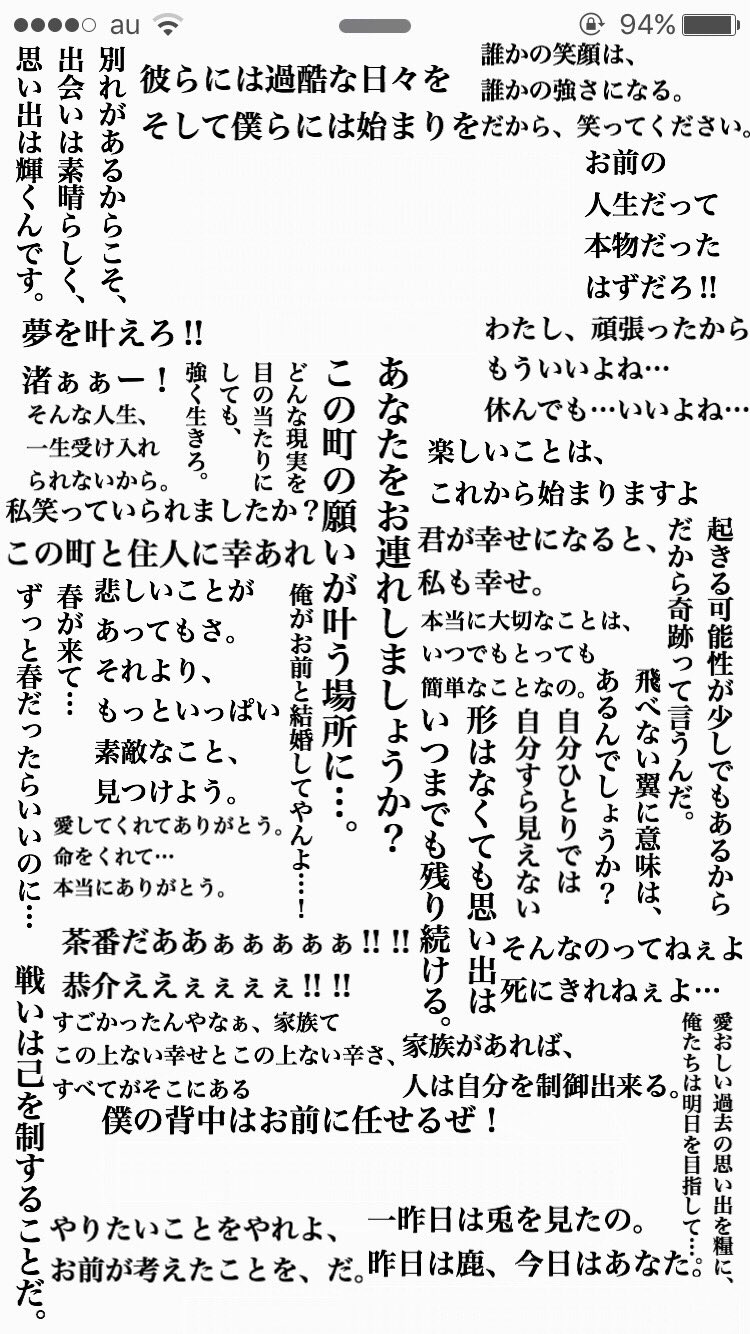 au
94%
別れがあるからこそ、
出会いは素晴らしく、
思い出は輝くんです。
彼らには過酷な日々を
そして僕らには始まりを
誰かの笑顔は、
誰かの強さになる。
だから、笑ってください。
お前の
人生だって
本物だった
はずだろ!!
夢を叶えろ!!
わたし、頑張ったから
もういいよね…
休んでも…いいよね…
渚ぁぁー！
そんな人生、
一生受け入れ
られないから。
どんな現実を
目の当たりに
しても、
強く生きろ。
あなたをお連れしましょうか？
この町の願いが叶う場所に…。
楽しいことは、
これから始まりますよ
私笑っていられましたか？
この町と住人に幸あれ
君が幸せになると、
私も幸せ。
起きる可能性が少しでもあるから
だから奇跡って言うんだ。
本当に大切なことは、
いつでもとっても
簡単なことなの。
飛べない翼に意味は、
あるんでしょうか？
春が来て…
ずっと春だったらいいのに…
悲しいことが
あってもさ。
それより、
もっといっぱい
素敵なこと、
見つけよう。
俺がお前と結婚してやんよ…！
自分ひとりでは
自分すら見えない
形はなくても思い出は
いつまでも残り続ける。
愛してくれてありがとう。
命をくれて…
本当にありがとう。
茶番だああぁぁぁぁぁ!! !!
恭介ええぇぇぇぇ!! !!
そんなのってねぇよ
死にきれねぇよ…
戦いは己を制することだ。
すごかったんやなぁ、家族て
この上ない幸せとこの上ない辛さ、
すべてがそこにある
家族があれば、
人は自分を制御出来る。
愛おしい過去の思い出を糧に、
俺たちは明日を目指して…。
僕の背中はお前に任せるぜ！
やりたいことをやれよ、
お前が考えたことを、だ。
一昨日は兎を見たの。
昨日は鹿、今日はあなた。